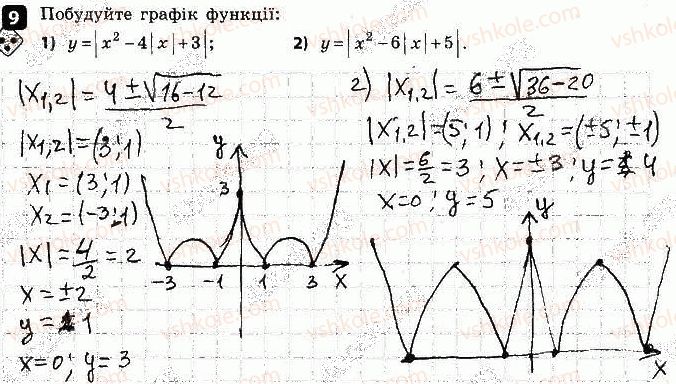 9 Побудуйте графік функції:
1) y=|x²−4|x|+3|; 2) y=|x²−6|x|+5|.
|x₁,₂| = (4 ± √(16−12))/2
|x₁,₂| = (3; 1)
x₁ = (3; 1)
x₂ = (−3; 1)
|x| = 4/2 = 2
x = ±2
y = 1
x=0; y=3
y
3
−3 −1 1 3 x
2) |x₁,₂| = (6 ± √(36−20))/2
|x₁,₂| = (5; 1); x₁,₂ = (±5; ±1)
|x| = 6/2 = 3; x = ±3; y = 4
x=0; y=5
y
x